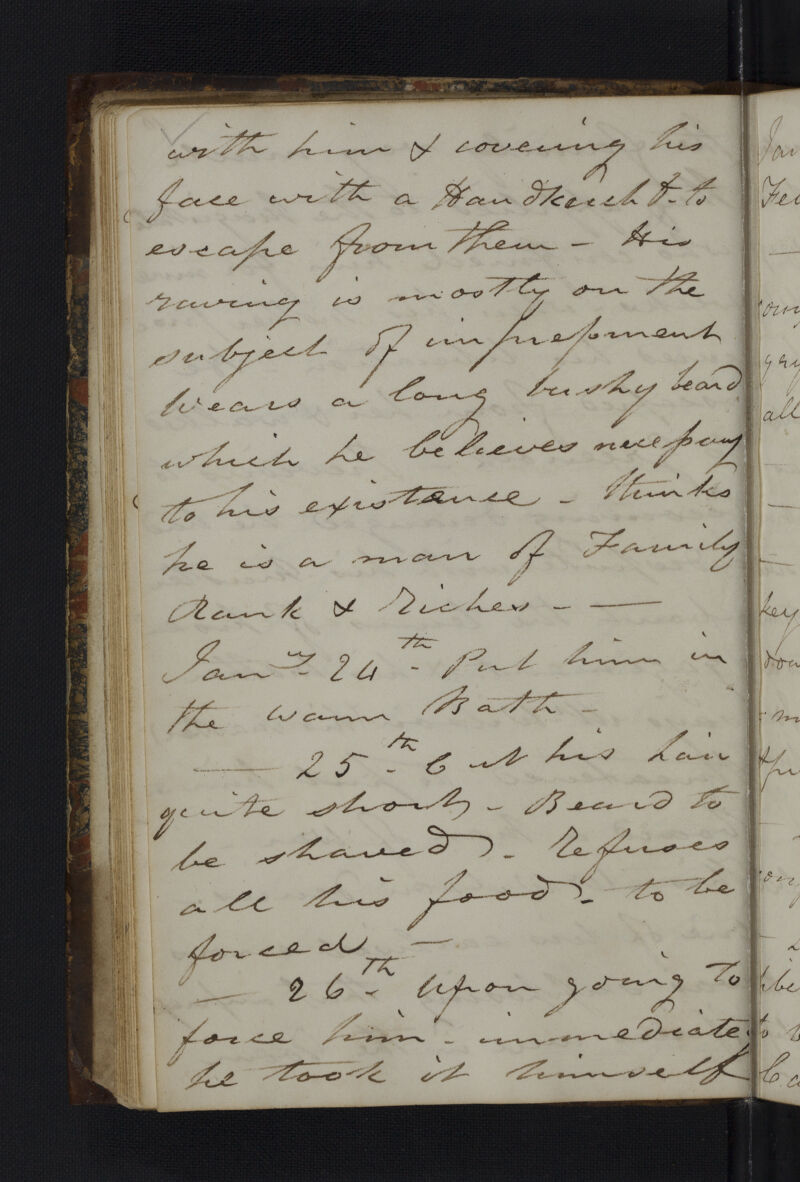 with him & covering his
face with a Handkercht. to
escape from them - His
raving is mostly on the
subject of impressment
Wears a long bushy beard
which he believes necessary
to his existence - thinks
he is a man of Family
Rank & Riches - —
Jany. 24th - Put him in
the warm Bath -
— 25th - Cut his hair
quite short - Beard to
be shaved - Refuses
all his food - to be
forced -
— 26th - Upon going to
force him - immediately
he took it himself